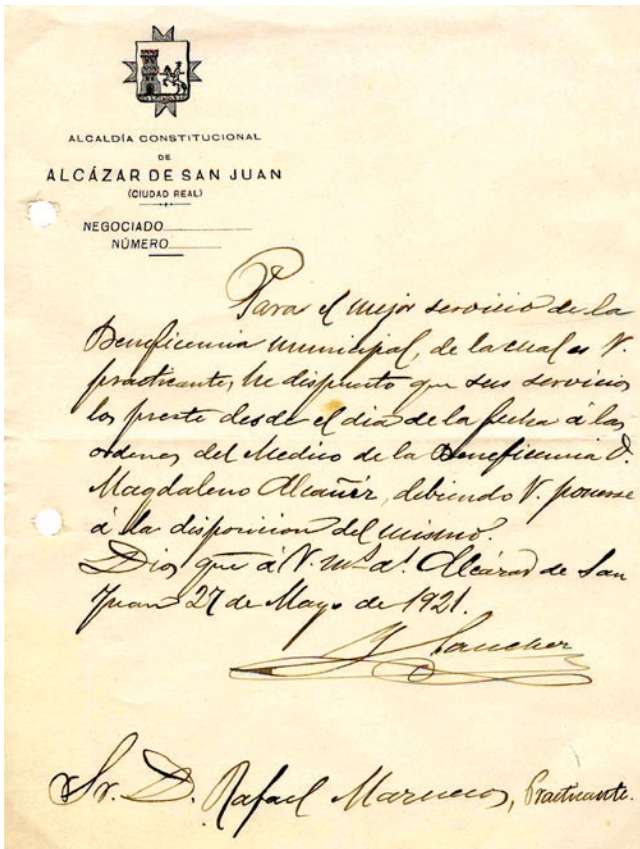 ALCALDÍA CONSTITUCIONAL
DE
ALCÁZAR DE SAN JUAN
(CIUDAD REAL)
NEGOCIADO
NÚMERO
Para el mejor servicio de la
Beneficencia municipal, de la cual es V.
practicante, he dispuesto que sus servicios
los preste desde el dia de la fecha á las
ordenes del Medico de la Beneficencia D.
Magdaleno Alcañiz, debiendo V. ponerse
á la disposicion del mismo.
Dios gue á V. ms. as. Alcázar de San
Juan 27 de Mayo de 1921.
Sanchez
Sr. D. Rafael Mazuecos, Practicante.